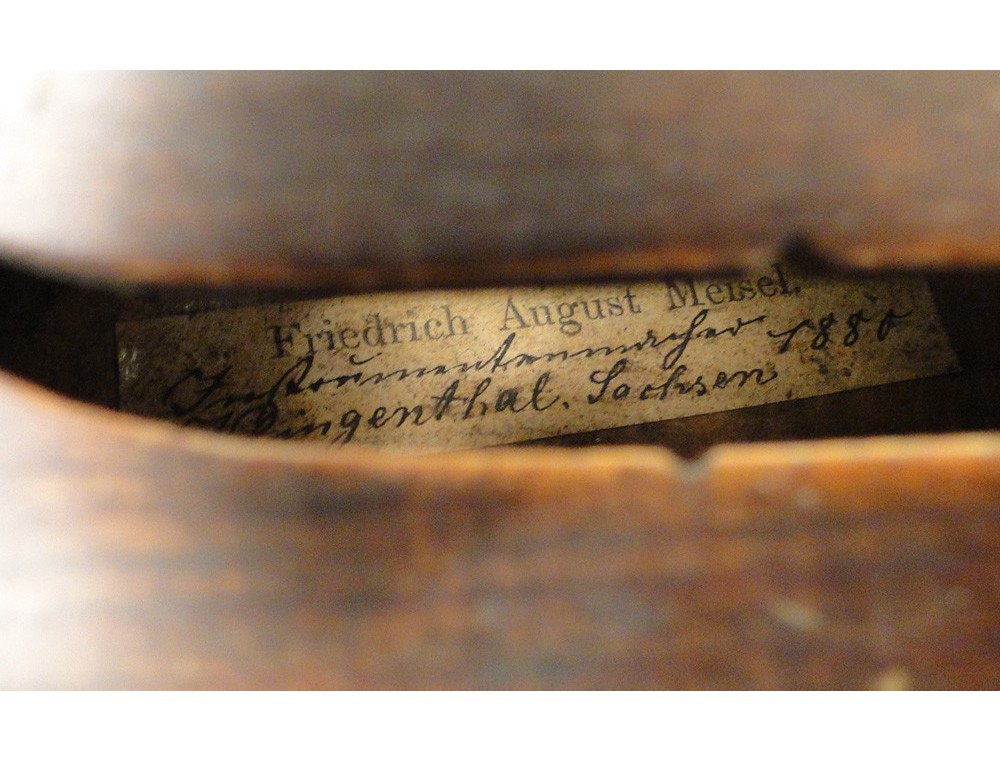 Friedrich August Meisel.
Instrumentenmacher 1880
Klingenthal. Sachsen